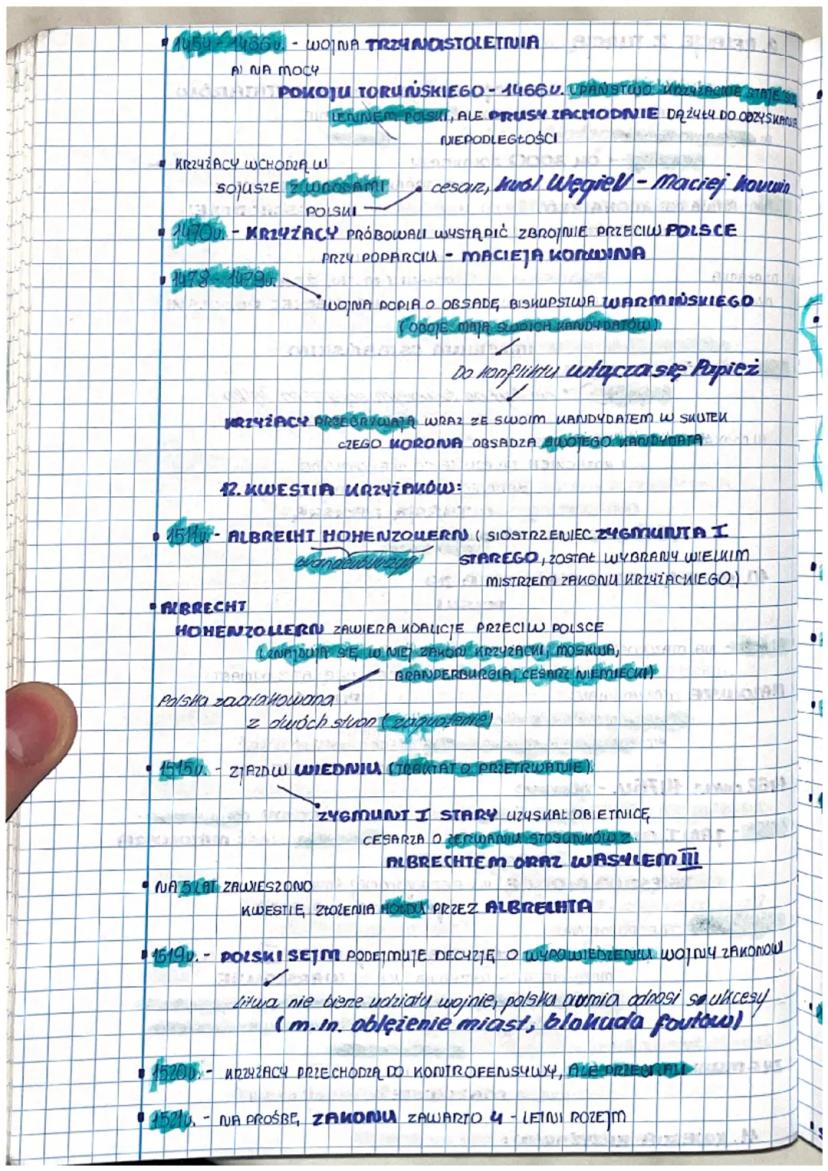 1454-1466r. - WOJNA TRZYNASTOLETNIA
A) NA MOCY
POKOJU TORUŃSKIEGO - 1466r. (PAŃSTWO KRZYŻACKIE STAJE SIĘ
LENNEM POLSKI, ALE PRUSY ZACHODNIE DĄŻYŁY DO ODZYSKANIA
NIEPODLEGŁOŚCI
• KRZYŻACY WCHODZĄ W
SOJUSZE Z WROGAMI • cesarz, król Węgier - Maciej Korwin
POLSKI
• 1470r. - KRZYŻACY PRÓBOWALI WYSTĄPIĆ ZBROJNIE PRZECIW POLSCE
PRZY POPARCIU - MACIEJA KORWINA
• 1478-1479r.
WOJNA POPIA O OBSADĘ BISKUPSTWA WARMIŃSKIEGO
(OBOJE MAJĄ SWOICH KANDYDATÓW)
Do konfliktu włącza się Papież
KRZYŻACY PRZEGRYWAJĄ WRAZ ZE SWOIM KANDYDATEM W SKUTEK
CZEGO KORONA OBSADZA SWOJEGO KANDYDATA
12. KWESTIA KRZYŻAKÓW:
• 1511r. - ALBRECHT HOHENZOLLERN (SIOSTRZENIEC ZYGMUNTA I
Brandenburgia STAREGO, ZOSTAŁ WYBRANY WIELKIM
MISTRZEM ZAKONU KRZYŻACKIEGO)
• ALBRECHT
HOHENZOLLERN ZAWIERA KOALICJE PRZECIW POLSCE
(ZNAJDUJĄ SIĘ W NIEJ ZAKON KRZYŻACKI, MOSKWA,
BRANDERBURGIA, CESARZ NIEMIECKI)
Polska zaatakowana
z dwóch stron (zagrożenie)
• 1515r. - ZJAZD W WIEDNIU (TRAKTAT O PRZETRWANIE)
ZYGMUNT I STARY UZYSKAŁ OBIETNICĘ
CESARZA O ZERWANIU STOSUNKÓW Z
ALBRECHTEM ORAZ WASYLEM III
• NA 5 LAT ZAWIESZONO
KWESTIĘ ZŁOŻENIA HOŁDU PRZEZ ALBRECHTA
• 1519r. - POLSKI SEJM PODEJMUJE DECYZJĘ O WYPOWIEDZENIU WOJNY ZAKONOWI
Litwa nie bierze udziału wojnie, polska armia odnosi sukcesy
(m.in. oblężenie miast, blokada fortów)
• 1520r. - KRZYŻACY PRZECHODZĄ DO KONTROFENSYWY, ALE PRZEGRALI
• 1521r. - NA PROŚBĘ ZAKONU ZAWARTO 4 - LETNI ROZEJM